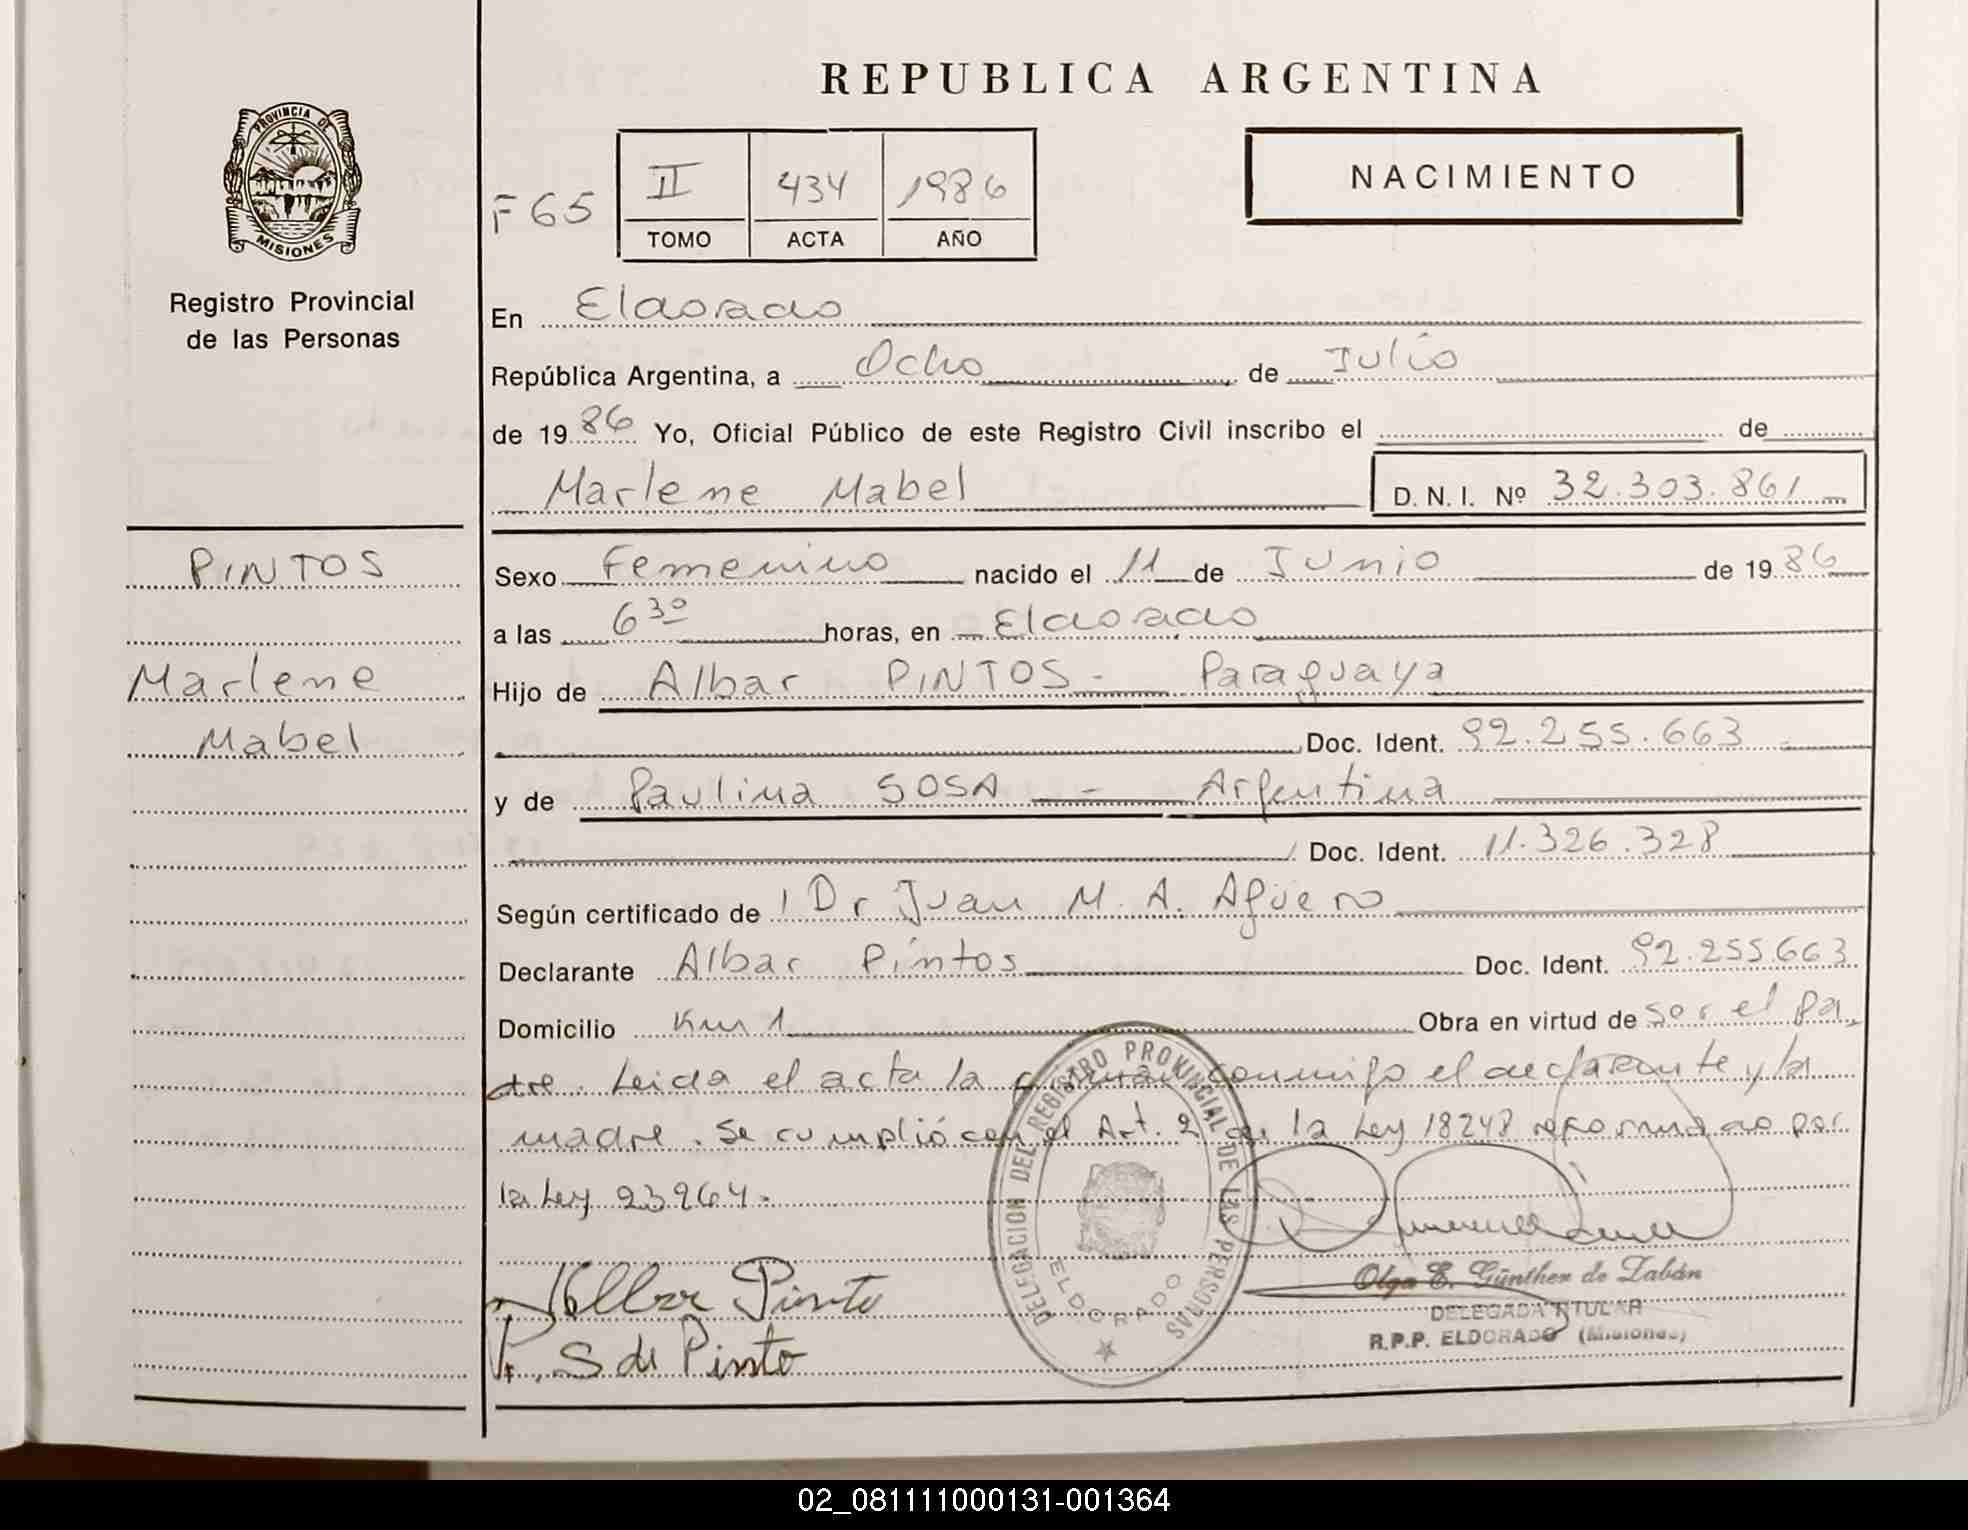 REPUBLICA ARGENTINA
PROVINCIA DE
MISIONES
Registro Provincial
de las Personas
F 65
II 434 1986
TOMO ACTA AÑO
NACIMIENTO
En Eldorado
República Argentina, a Ocho de Julio
de 1986 Yo, Oficial Público de este Registro Civil inscribo el de
Marlene Mabel D. N. I. Nº 32.303.861
PINTOS
Marlene
Mabel
Sexo Femenino nacido el 11 de Junio de 1986
a las 6 30 horas, en Eldorado
Hijo de Albar PINTOS - Paraguaya
Doc. Ident. 92.255.663
y de Paulina SOSA - Argentina
Doc. Ident. 11.326.328
Según certificado de Dr Juan M. A. Agüero
Declarante Albar Pintos Doc. Ident. 92.255.663
Domicilio Km 1 Obra en virtud de ser el pa
dre. Leida el acta la firman conmigo el declarante y la
madre. Se cumplió con el Art. 2 de la Ley 18248 reformado por
la Ley 23264.
DELEGACION DEL REGISTRO PROVINCIAL DE LAS PERSONAS
ELDORADO
Albar Pinto
P. S de Pinto
Olga E. Günther de Zabán
DELEGADA TITULAR
R.P.P. ELDORADO (Misiones)
02_081111000131-001364